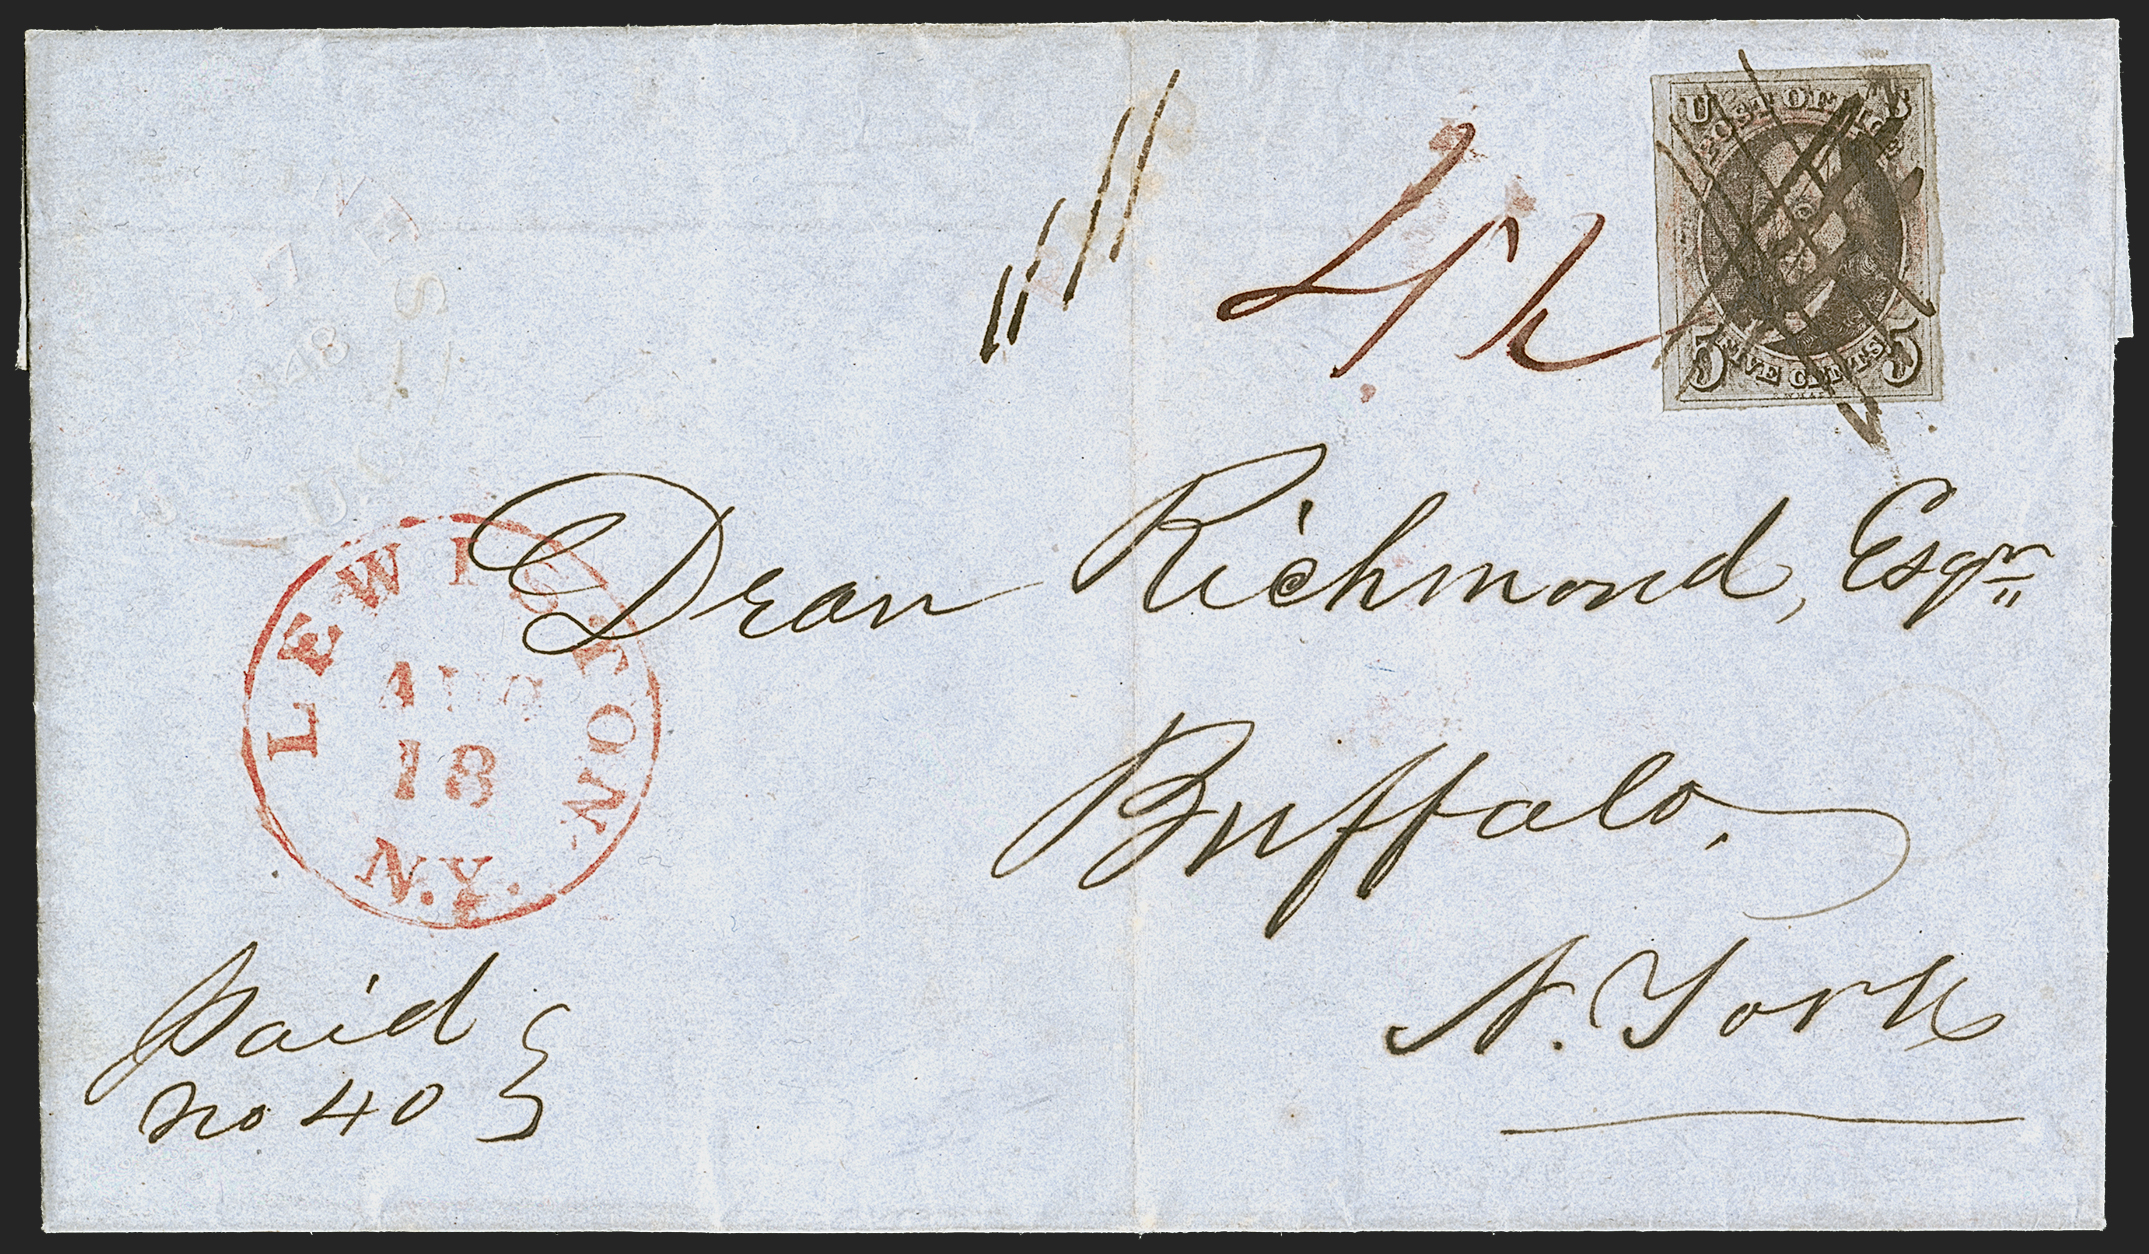 4½
U POST OFFICE S
5 FIVE CENTS 5
Dean Richmond, Esqr
Buffalo.
N. York
LEWISTON
AUG
18
N.Y.
Paid
No 40